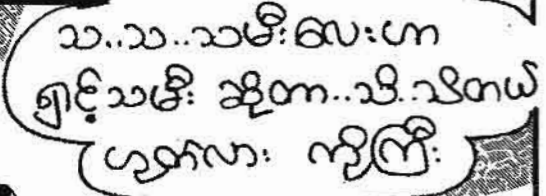 သ..သ..သမီးလေးဟာ
ရှင့်သမီး ဆိုတာ..သိ..သိတယ်
ဟုတ်လား ကိုကြီး